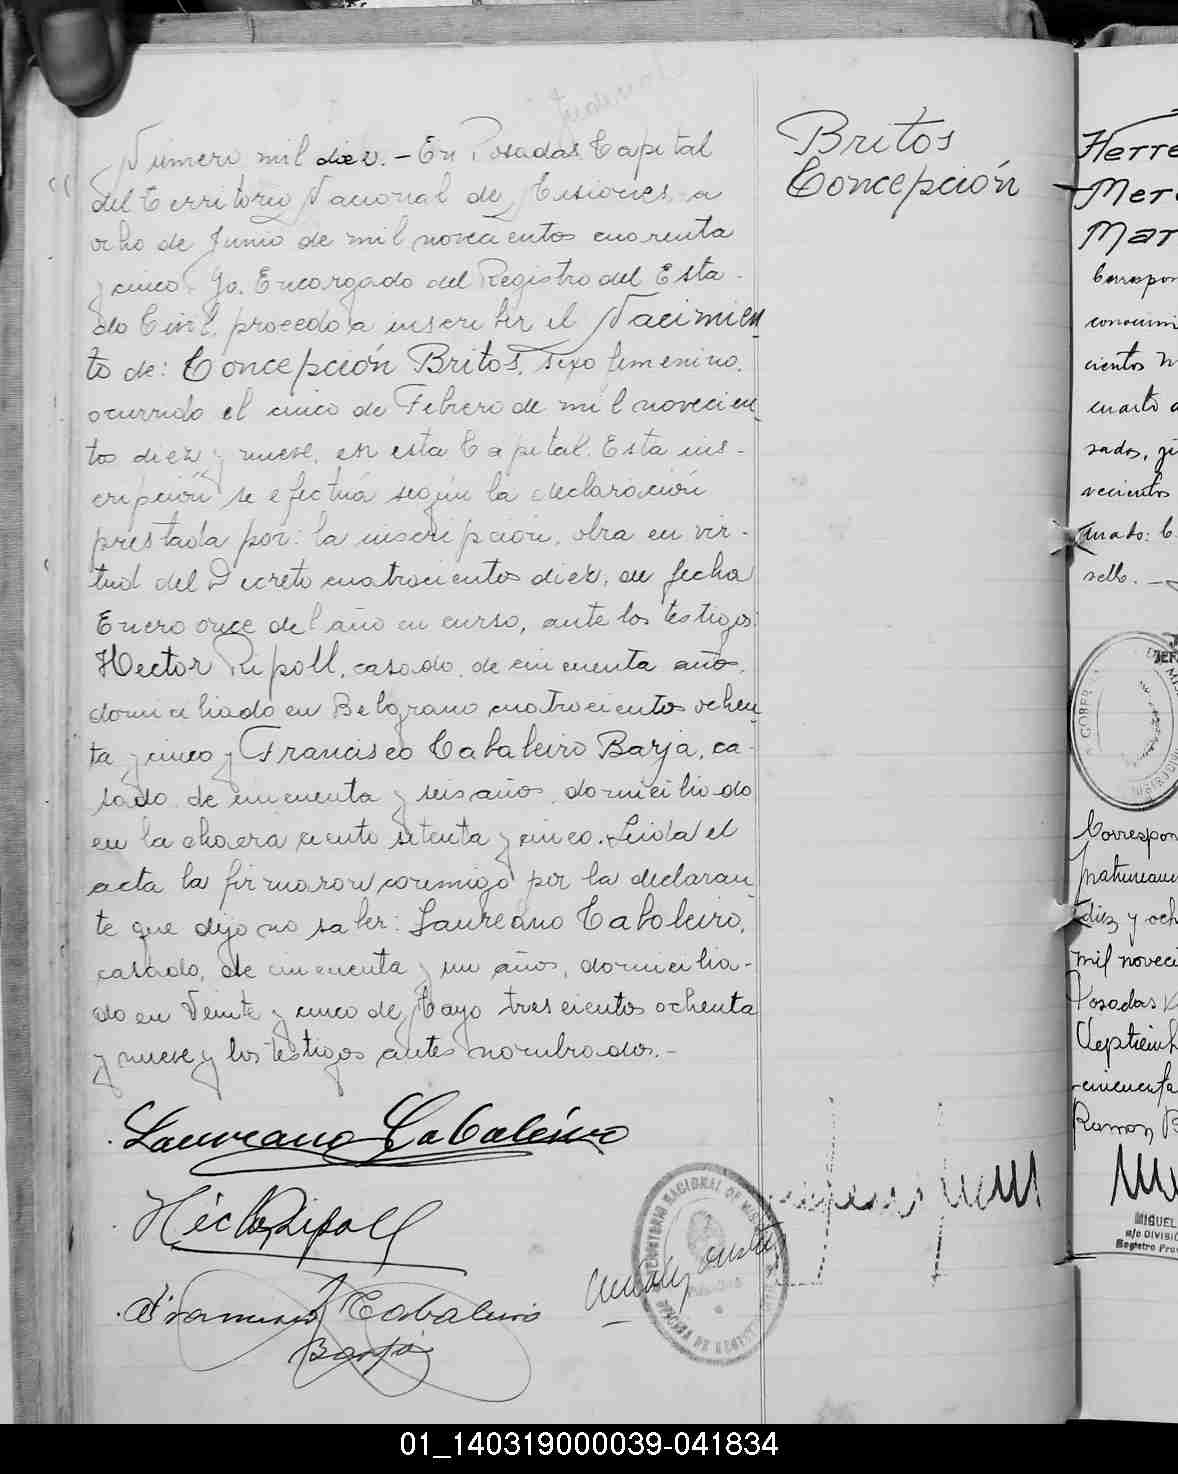 Britos
Concepción
Número mil diez.- En Posadas Capital
del Territorio Nacional de Misiones, a
ocho de Junio de mil novecientos cuarenta
y cinco. Yo. Encargado del Registro del Esta-
do Civil, procedo a inscribir el Nacimien
to de: Concepción Britos, sexo femenino,
ocurrido el cinco de Febrero de mil novecien
tos diez y nueve, en esta Capital. Esta ins-
cripción se efectúa según la declaración
prestada por: la inscripción, obra en vir-
tud del Decreto cuatrocientos diez, de fecha
Enero once del año en curso, ante los testigos:
Hector Ripoll, casado, de cincuenta años,
domiciliado en Belgrano cuatrocientos ochen
ta y cinco y Francisco Cabaleiro Barja, ca-
sado, de cincuenta y seis años, domiciliado
en la chacra ciento setenta y cinco. Leida el
acta la firmaron conmigo por la declaran
te que dijo no saber: Laureano Cabaleiro,
casado, de cincuenta y un años, domicilia-
do en Veinte y cinco de Mayo trescientos ochenta
y nueve y los testigos antes nombrados.-
Laureano Cabaleiro
Héctor Ripoll
Francisco Cabaleiro
Barja
TERRITORIO NACIONAL DE MISIONES
Herre
Merc
Mar
Correspon
conocimi
cientos
cuarto
sados,
vecientos
sello.-
Correspon
diez y och
mil noveci
Posadas
Septiemb
cincuenta
Ramon
MIGUEL
a/c DIVISIÓ
Registro Prov
01_140319000039-041834